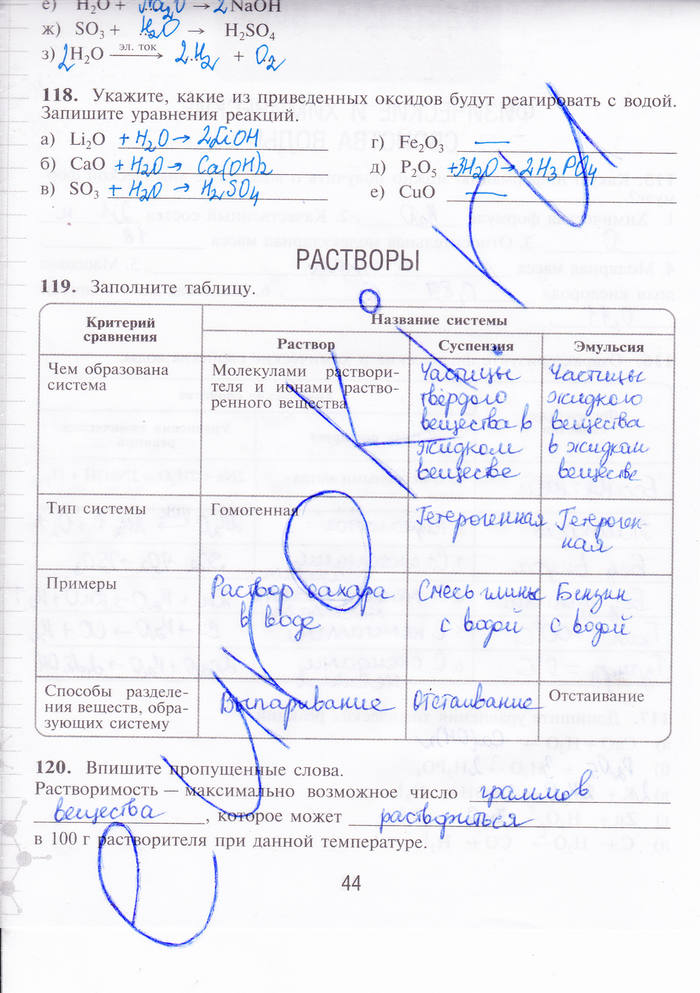 е) H₂O + Na₂O → 2NaOH
ж) SO₃ + H₂O → H₂SO₄
з) 2H₂O эл. ток → 2H₂ + O₂
118. Укажите, какие из приведенных оксидов будут реагировать с водой.
Запишите уравнения реакций.
а) Li₂O + H₂O → 2LiOH г) Fe₂O₃ —
б) CaO + H₂O → Ca(OH)₂ д) P₂O₅ +3H₂O → 2H₃PO₄
в) SO₃ + H₂O → H₂SO₄ е) CuO —
РАСТВОРЫ
119. Заполните таблицу.
Критерий
сравнения
Название системы
Раствор Суспензия Эмульсия
Чем образована
система
Молекулами раствори-
теля и ионами раство-
ренного вещества
Частицы
твёрдого
вещества в
жидком
веществе
Частицы
жидкого
вещества
в жидком
веществе
Тип системы
Гомогенная
Гетерогенная
Гетероген-
ная
Примеры
Раствор сахара
в воде
Смесь глины
с водой
Бензин
с водой
Способы разделе-
ния веществ, обра-
зующих систему
Выпаривание
Отстаивание
Отстаивание
120. Впишите пропущенные слова.
Растворимость — максимально возможное число граммов
вещества, которое может раствориться
в 100 г растворителя при данной температуре.
44